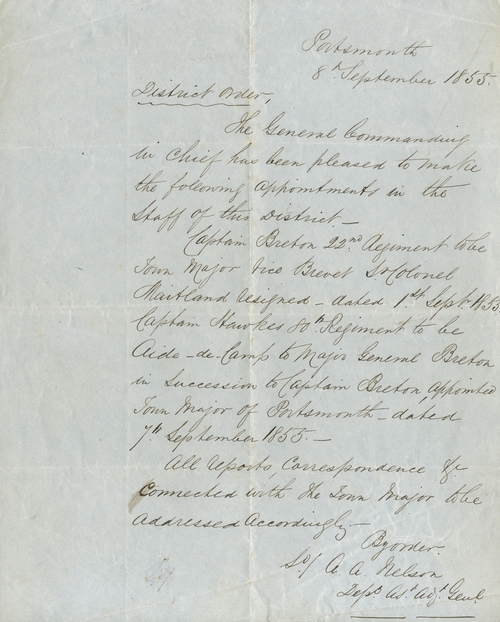 Portsmouth
8th September 1855.
District Order,
The General Commanding
in Chief has been pleased to make
the following appointments in the
Staff of this District —
Captain Breton 22nd Regiment to be
Town Major vice Brevet Lt Colonel
Maitland resigned – dated 1st Sept 1855
Captain Hawkes 80th Regiment to be
Aide-de-Camp to Major General Breton
in Succession to Captain Breton, appointed
Town Major of Portsmouth – dated
7th September 1855. —
All reports, Correspondence &c
Connected with the Town Major to be
addressed accordingly —
By order.
A. A. Nelson
Adjt Genl.